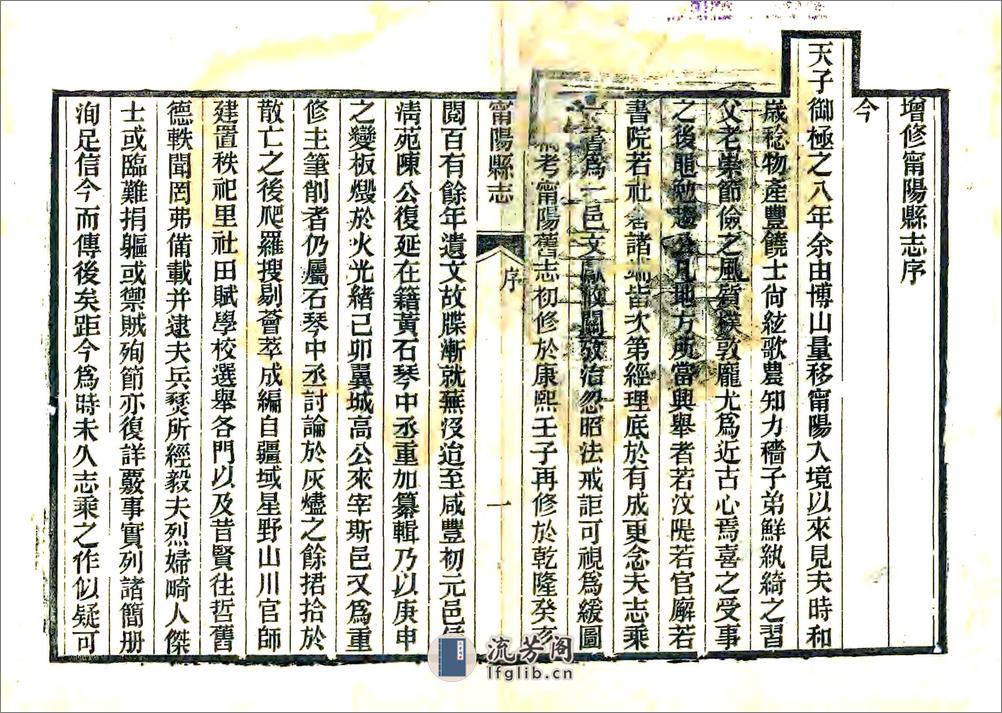 增修甯陽縣志序
今
天子御極之八年余由博山量移甯陽入境以來見夫時和
歲稔物產豐饒士尙絃歌農知力穡子弟鮮紈綺之習
父老崇節儉之風質樸敦龐尤爲近古心焉喜之受事
之後黽勉趨公凡地方所當興舉者若汶隄若官廨若
書院若社倉諸端皆次第經理底於有成更念夫志乘
書爲一邑文獻攸關政治忽昭法戒詎可視爲緩圖
考甯陽舊志初修於康熙壬子再修於乾隆癸亥
甯陽縣志
序
一
閱百有餘年遺文故牒漸就蕪沒迨至咸豐初元邑
淸苑陳公復延在籍黃石琴中丞重加纂輯乃以庚申
之變板燬於火光緒己卯翼城高公來宰斯邑又爲重
修主筆削者仍屬石琴中丞討論於灰燼之餘捃拾於
散亡之後爬羅搜剔薈萃成編自疆域星野山川官師
建置秩祀里社田賦學校選舉各門以及昔賢往哲舊
德軼聞罔弗備載并逮夫兵燹所經毅夫烈婦畸人傑
士或臨難捐軀或禦賊殉節亦復詳覈事實列諸簡册
洵足信今而傳後矣距今爲時未久志乘之作似疑可
流芳阁
lfglib.cn